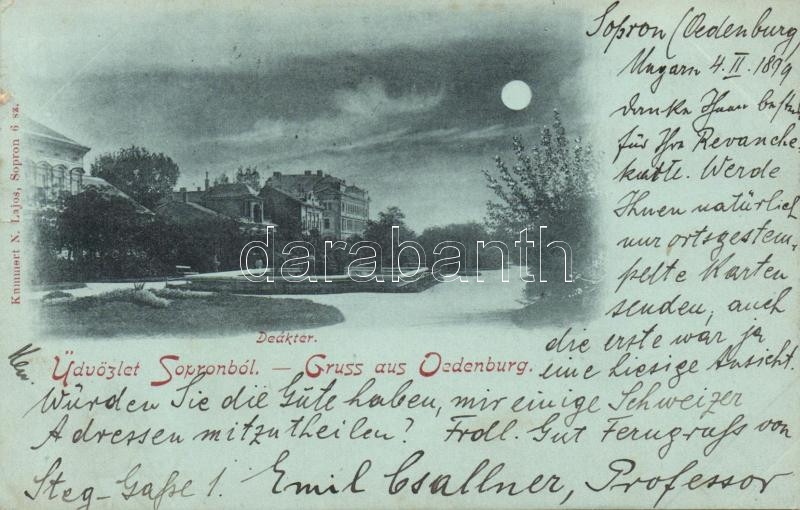 Sopron (Oedenburg)
Ungarn 4. II. 1899
danke Ihnen bestens
für Ihre Revanche-
karte. Werde
Ihnen natürlich
nur ortsgestem-
pelte Karten
senden, auch
die erste war ja
eine hiesige Ansicht.
Kummert N. Lajos, Sopron 6 sz.
darabanth.com
Deákter.
Üdvözlet Sopronból. — Gruss aus Oedenburg.
Würden Sie die Güte haben, mir einige Schweizer
Adressen mitzutheilen? Frdl. Gut Ferngruß von
Steg-Gaße 1. Emil Csallner, Professor